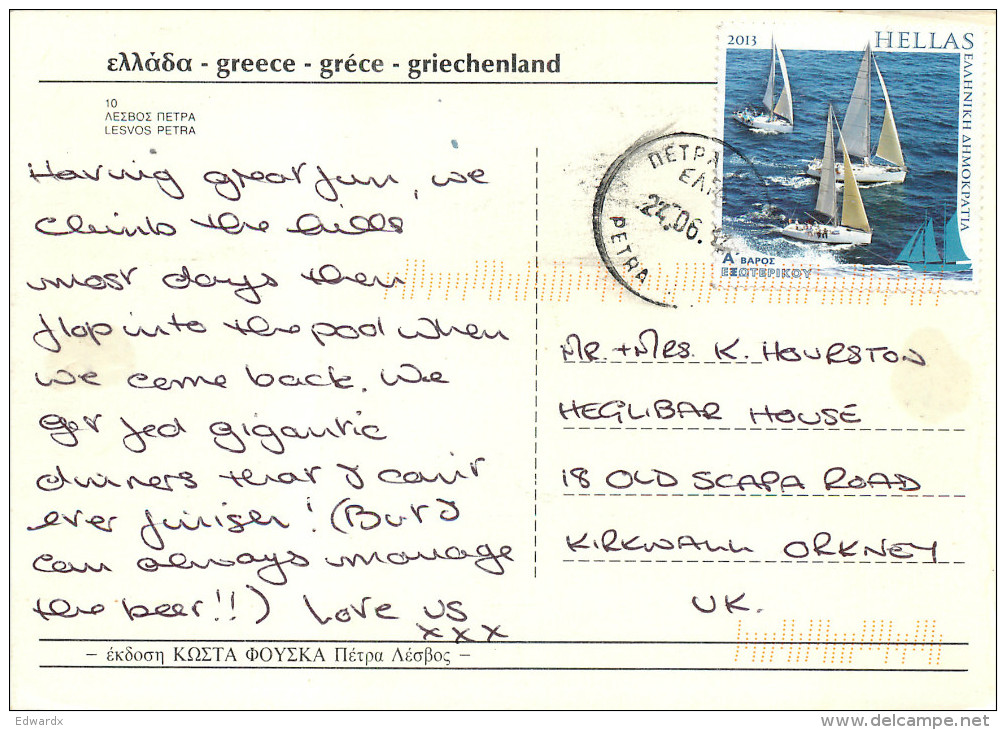 ελλάδα - greece - gréce - griechenland
10
ΛΕΣΒΟΣ ΠΕΤΡΑ
LESVOS PETRA
Having great fun, we
climb the hills
most days then
flop into the pool when
we come back. We
get fed gigantic
dinners that I can't
ever finish! (But I
can always manage
the beer!!) Love us
xxx
2013 HELLAS
ΕΛΛΗΝΙΚΗ ΔΗΜΟΚΡΑΤΙΑ
Α' ΒΑΡΟΣ
ΕΞΩΤΕΡΙΚΟΥ
ΠΕΤΡΑ
24.06.
PETRA
MR. + MRS. K. HOURSTON
HEGLIBAR HOUSE
18 OLD SCAPA ROAD
KIRKWALL ORKNEY
UK.
- έκδοση ΚΩΣΤΑ ΦΟΥΣΚΑ Πέτρα Λέσβος -
Edwardx
www.delcampe.net